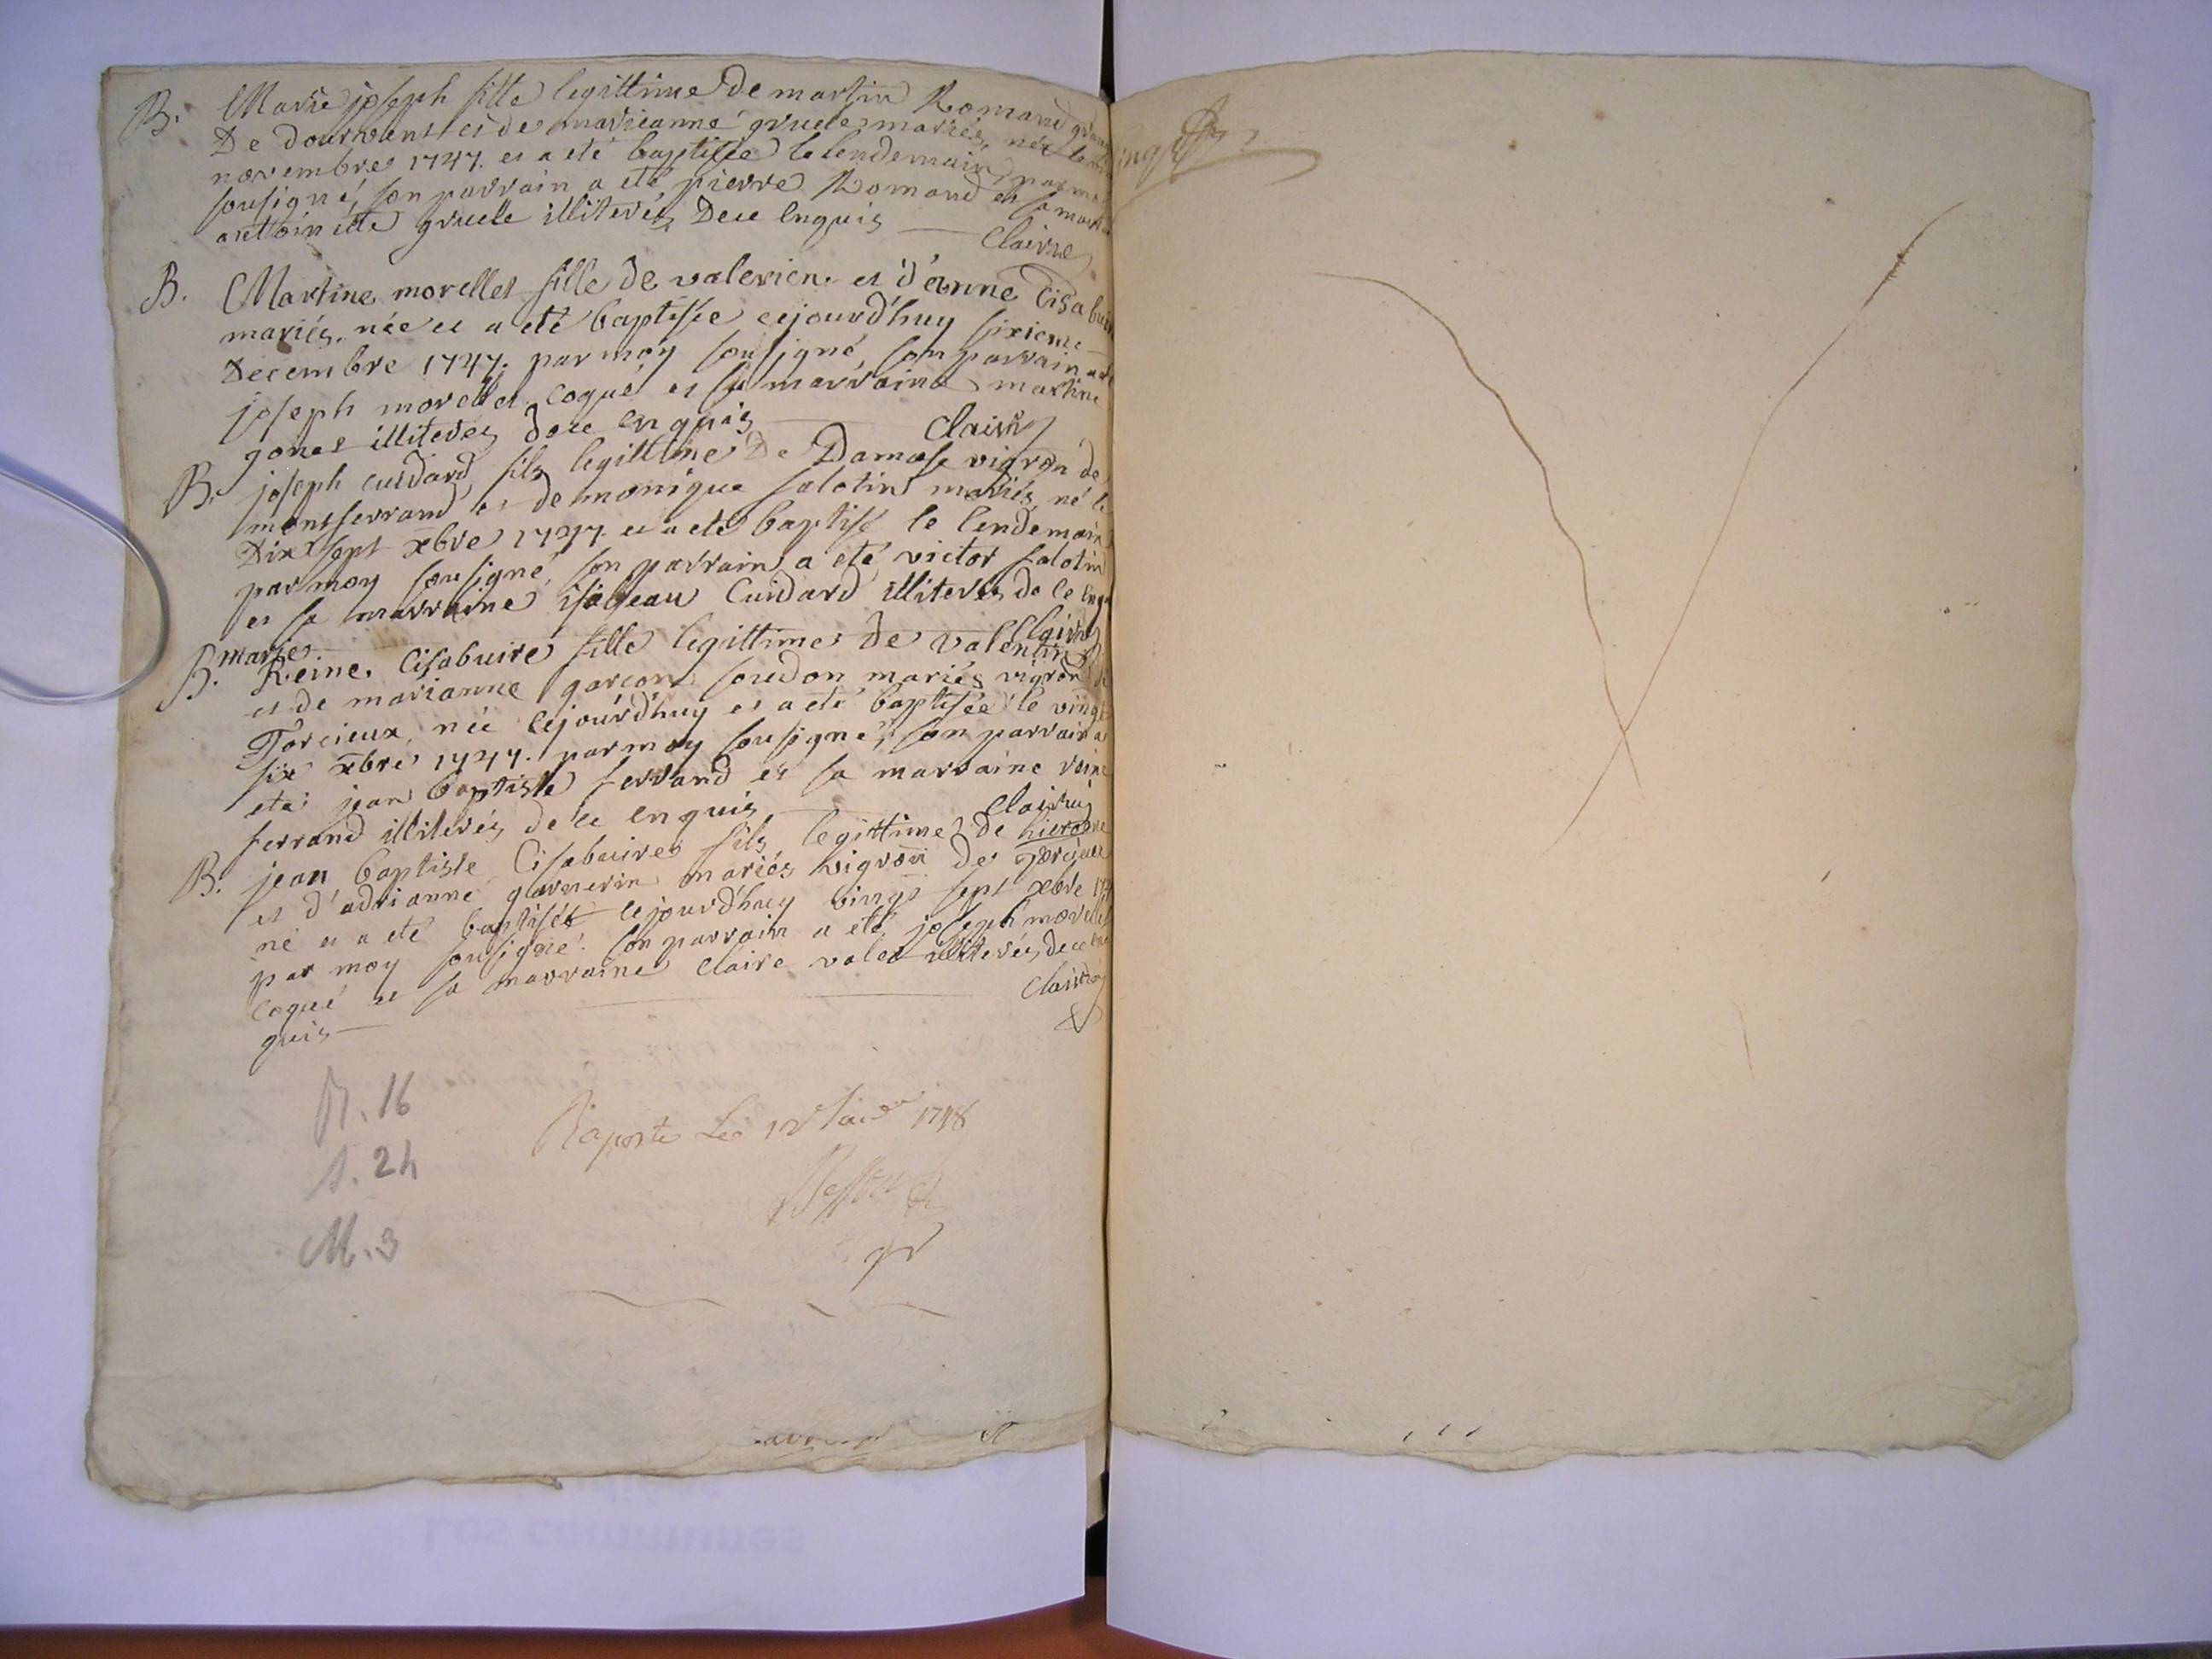 B. Marie joseph fille legittime de martin Romand
De dournens et de marieanne gruele mariés, née le
novembre 1747. et a eté baptisée le lendemain par
sousigné, son parrain a eté pierre Romand et sa
antoinette gruele illiterés, De ce Enquis — Claire
B. Martine morellet fille de valerien et d'anne Cisabuire
mariés. née et a eté baptisée cejourd'huy sixieme
Decembre 1747. par moy sousigné, son parrain a
joseph morellet coqué et sa marraine martine
gonet illiterés de ce enquis — Claire
B. joseph cuidard fils legittime De Damase vigron de
montferrand et de monique salotin mariés né le
Dix sept xbre 1747. et a eté baptisé le lendemain
par moy sousigné, son parrain a eté victor salotin
et sa marraine isabeau Cuidard illiterés de ce
Claire
B. marie
Reine Cisabuire fille legittime de valentin
et de marianne garcon soudon mariés vigron de
Torcieux, née cejourd'huy et a eté baptisée le vingt
six xbre 1747. par moy sousigné, son parrain a
eté jean baptiste ferrand et sa marraine reine
ferrand illiterés de ce enquis — Claire
B. jean baptiste Cisabuire fils legittime de hierome
et d'adrianne garnerin mariés vigron de Torcieux
né et a eté baptisé cejourd'huy vingt sept xbre
par moy sousigné. son parrain a eté joseph morellet
coqué et sa marraine Claire valet illiterés de ce en
quis — Claire
16
S. 24
M. 3
Raporté Le 12 1748